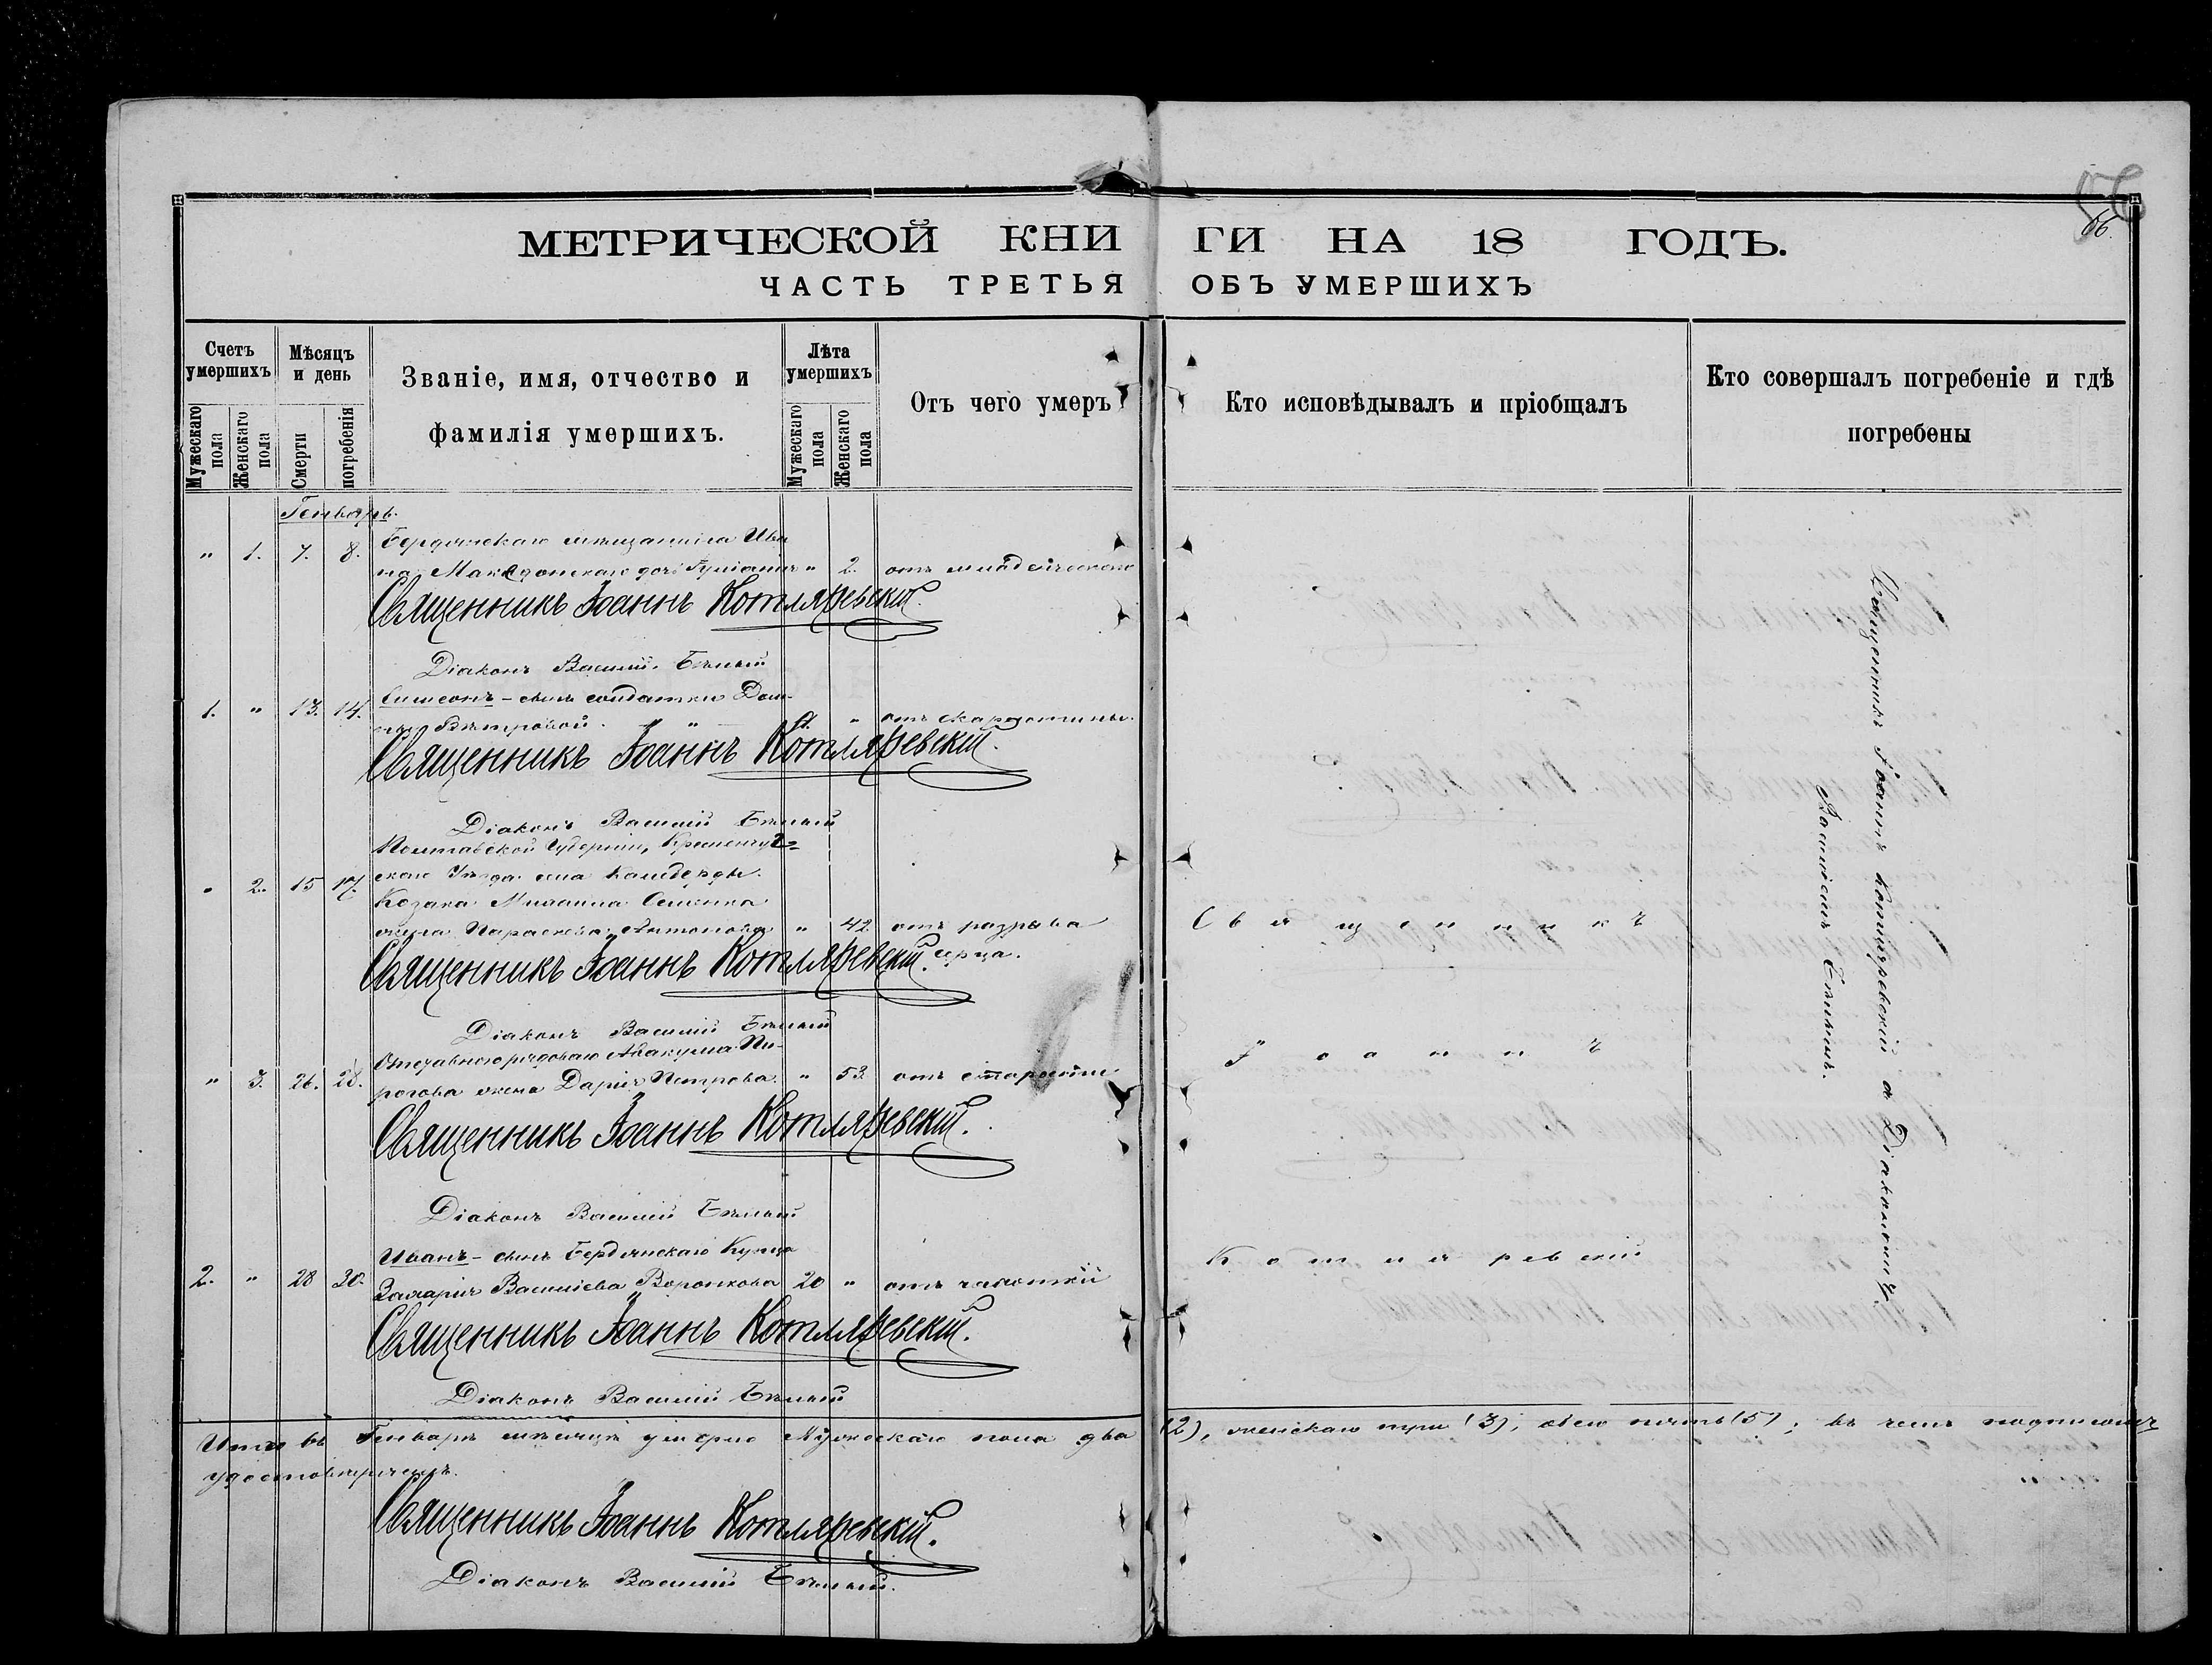 56
66.
МЕТРИЧЕСКОЙ КНИ ГИ НА 18 ГОДЪ.
ЧАСТЬ ТРЕТЬЯ ОБЪ УМЕРШИХЪ
Счетъ умершихъ
Мѣсяцъ и день
Званіе, имя, отчество и фамилія умершихъ.
Лѣта умершихъ
Отъ чего умеръ
Кто исповѣдывалъ и пріобщалъ
Кто совершалъ погребеніе и гдѣ погребены
Мужескаго пола
Женскаго пола
Смерти
погребенія
Мужескаго пола
Женскаго пола
Генварь.
Бердянскаго мѣщанина Ива
" 1. 7. 8. на Македонскаго дочь " 2. отъ младенческой
Священникъ Іоаннъ Котляревскій.
Діаконъ Василій Бѣлый
Симеонъ - сынъ солдатки Дом-
1. " 13. 14. ны Вѣтровой. "
Священникъ Іоаннъ Котляревскій.
Діаконъ Василій Бѣлый
Полтавской Губерніи, Кременчуг=
" 2. 15 17. скаго Уѣзда села
Козака Михаила
жена Параскева Антонова " 42 отъ разрыва
серца.
Священникъ Іоаннъ Котляревскій.
Діаконъ Василій Бѣлый
Отставного рядоваго Авакума Пи-
" 3. 26. 28. рогова жена Дарія Петрова. " 53 отъ старости
Священникъ Іоаннъ Котляревскій.
Діаконъ Василій Бѣлый
Иванъ - сынъ Бердянскаго Купца
2. " 28 30. Захарія Василіева Воронкова 20 " отъ чахотки
Священникъ Іоаннъ Котляревскій.
Діаконъ Василій Бѣлый
Священникъ
Іоаннъ
Котляревскій
Священникъ Іоаннъ Котляревскій съ Діакономъ
Василіемъ Бѣлымъ.
Итого въ Генварѣ мѣсяцѣ умерло Мужескаго пола два (2), женскаго три (3), обоего пять (5); въ чемъ подписомъ
удостовѣряемъ.
Священникъ Іоаннъ Котляревскій.
Діаконъ Василій Бѣлый.